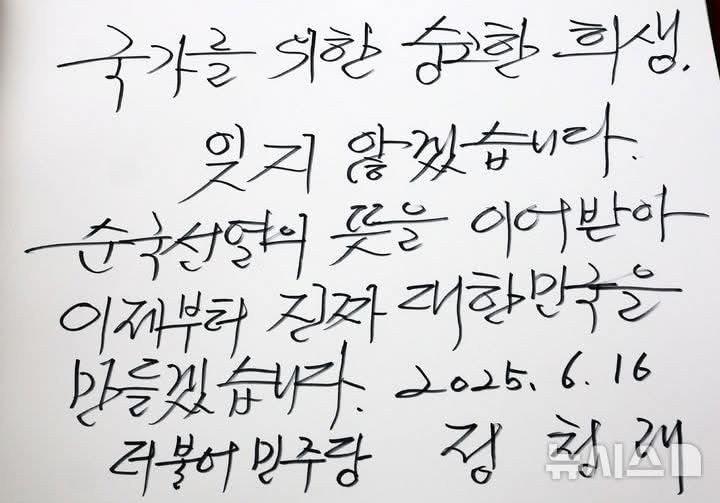 국가를 위한 숭고한 희생.
잊지 않겠습니다.
순국선열의 뜻을 이어받아
이제부터 진짜 대한민국을
만들겠습니다. 2025. 6. 16
더불어민주당 정청래
뉴시스